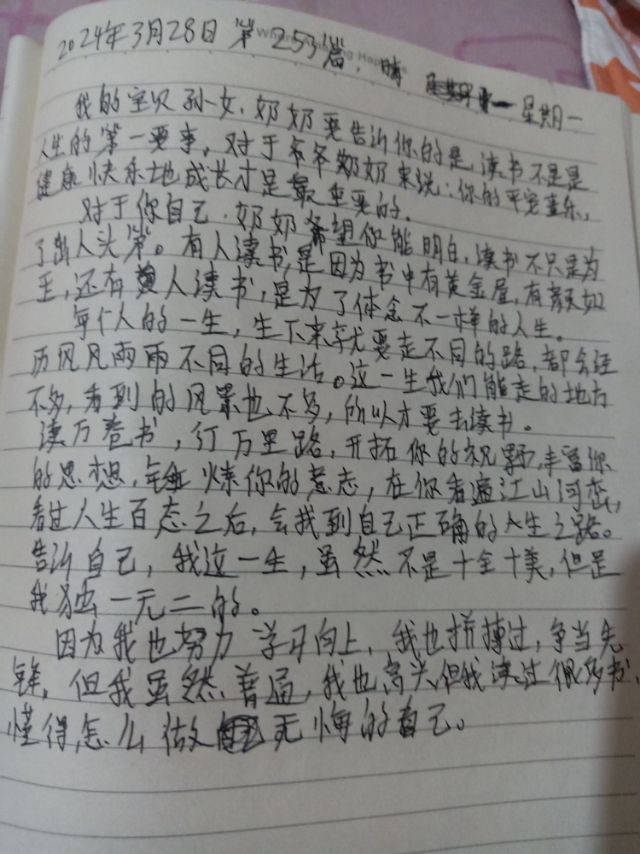 2024年3月28日 第253篇，晴 星期一
我的宝贝孙女，奶奶要告诉你的是，读书不是是
人生的第一要事，对于爷爷奶奶来说：你的平安喜乐，
健康快乐地成长才是最重要的。
对于你自己，奶奶希望你能明白，读书不只是为
了出人头第。有人读书，是因为书中有黄金屋，有颜如
玉，还有人读书，是为了体念不一样的人生。
每个人的一生，生下来就要走不同的路，都会经
历风风雨雨不同的生活。这一生我们能走的地方
不多，看到的风景也不多，所以才要去读书。
读万卷书，行万里路，开拓你的视野，丰富你
的思想，锻炼你的意志，在你看遍江山河峦，
看过人生百态之后，会找到自己正确的人生之路。
告诉自己，我这一生，虽然不是十全十美，但是
我独一无二的。
因为我也努力学习向上，我也拼搏过，争当先
锋，但我虽然普通，我也高兴，但我读过很多书，
懂得怎么做无悔的自己。